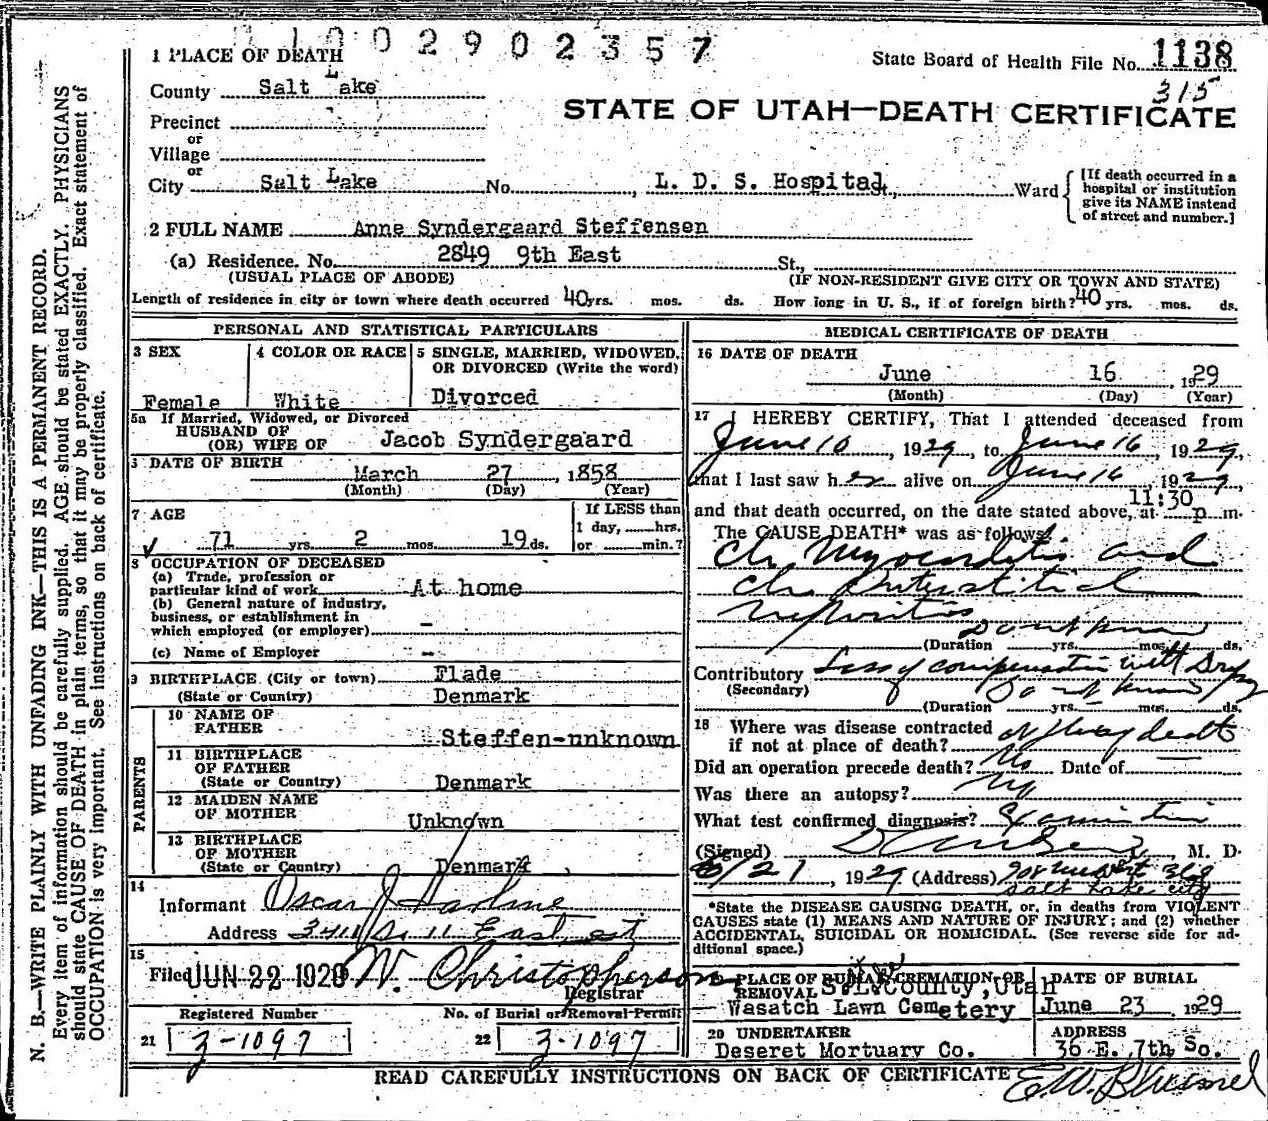 1 0 0 2 9 0 2 3 5 7
1 PLACE OF DEATH
State Board of Health File No. 1138
County Salt Lake
315
STATE OF UTAH—DEATH CERTIFICATE
Precinct
or
Village
or
City Salt Lake No. , L. D. S. Hospital, Ward
[If death occurred in a
hospital or institution
give its NAME instead
of street and number.]
2 FULL NAME Anne Syndergaard Steffensen
(a) Residence. No. 2849 9th East St.,
(USUAL PLACE OF ABODE) (IF NON-RESIDENT GIVE CITY OR TOWN AND STATE)
Length of residence in city or town where death occurred 40 yrs. mos. ds. How long in U. S., if of foreign birth? 40 yrs. mos. ds.
PERSONAL AND STATISTICAL PARTICULARS
3 SEX
Female
4 COLOR OR RACE
White
5 SINGLE, MARRIED, WIDOWED,
OR DIVORCED (Write the word)
Divorced
5a If Married, Widowed, or Divorced
HUSBAND OF
(OR) WIFE OF Jacob Syndergaard
DATE OF BIRTH
March 27, 1858
(Month) (Day) (Year)
7 AGE
71 yrs. 2 mos. 19 ds.
If LESS than
1 day, hrs.
or min.?
8 OCCUPATION OF DECEASED
(a) Trade, profession or
particular kind of work At home
(b) General nature of industry,
business, or establishment in
which employed (or employer) -
(c) Name of Employer -
9 BIRTHPLACE (City or town) Flade
(State or Country) Denmark
PARENTS
10 NAME OF
FATHER Steffen-unknown
11 BIRTHPLACE
OF FATHER
(State or Country) Denmark
12 MAIDEN NAME
OF MOTHER Unknown
13 BIRTHPLACE
OF MOTHER
(State or Country) Denmark
14
Informant Oscar J
Address So. 11 East
15
Filed JUN 22 1929 W. Christopherson
Registrar
Registered Number No. of Burial or Removal Permit
21 3-1097 22 3-1097
MEDICAL CERTIFICATE OF DEATH
16 DATE OF DEATH
June 16, 1929
(Month) (Day) (Year)
17 I HEREBY CERTIFY, That I attended deceased from
June 10, 1929, to June 16, 1929,
that I last saw her alive on June 16, 1929,
and that death occurred, on the date stated above, at 11:30 p m.
The CAUSE DEATH* was as follows:
Ch. Myocarditis and
Ch. Interstitial
Nephritis
Dont know
(Duration yrs. mos. ds.
Contributory Loss of compensation with Dropsy
(Secondary) Dont know
(Duration yrs. mos. ds.
18 Where was disease contracted
if not at place of death?
Did an operation precede death? No Date of
Was there an autopsy? No
What test confirmed diagnosis? Examination
(Signed) M. D.
6/21, 1929 (Address)
Salt Lake City
*State the DISEASE CAUSING DEATH, or, in deaths from VIOLENT
CAUSES state (1) MEANS AND NATURE OF INJURY; and (2) whether
ACCIDENTAL, SUICIDAL OR HOMICIDAL. (See reverse side for ad-
ditional space.)
PLACE OF BURIAL, CREMATION OR
REMOVAL County, Utah
Wasatch Lawn Cemetery
DATE OF BURIAL
June 23, 1929
20 UNDERTAKER
Deseret Mortuary Co.
ADDRESS
36 E. 7th So.
READ CAREFULLY INSTRUCTIONS ON BACK OF CERTIFICATE
N. B.—WRITE PLAINLY WITH UNFADING INK—THIS IS A PERMANENT RECORD.
Every item of information should be carefully supplied. AGE should be stated EXACTLY. PHYSICIANS
should state CAUSE OF DEATH in plain terms, so that it may be properly classified. Exact statement of
OCCUPATION is very important. See instructions on back of certificate.